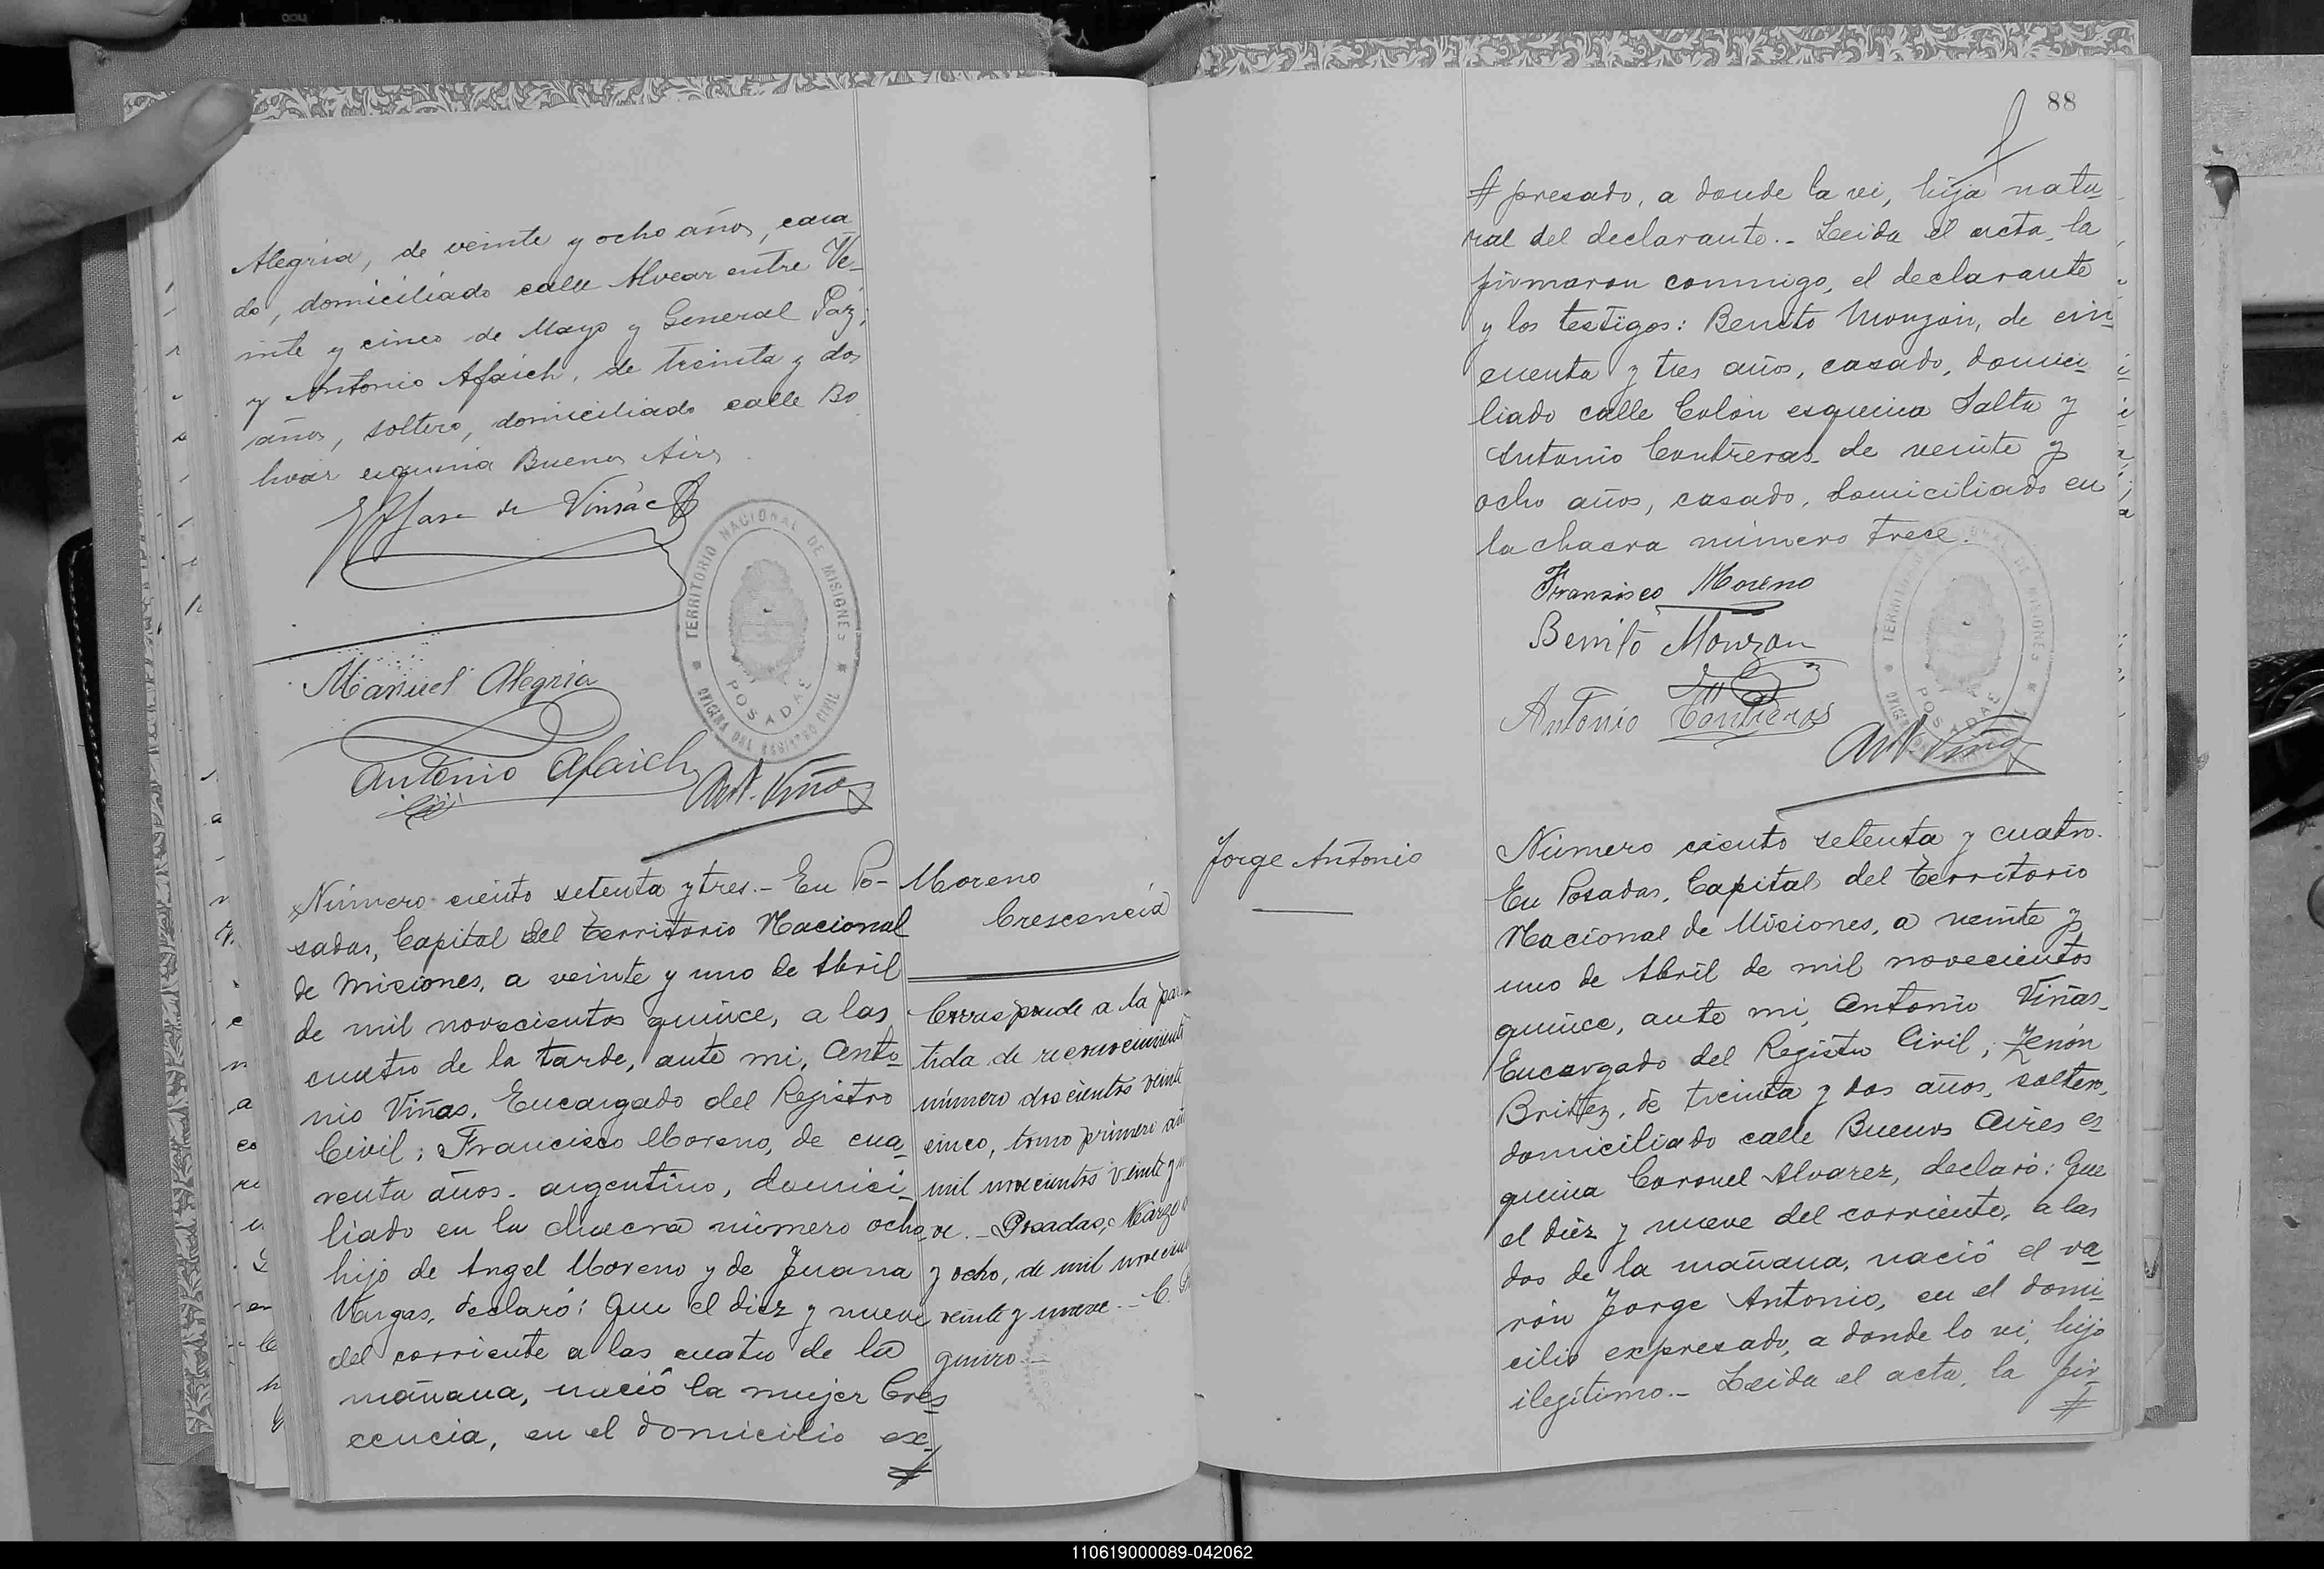 Alegria, de veinte y ocho años, casa
do, domiciliado calle Alvear entre Ve-
inte y cinco de Mayo y General Paz;
y Antonio Afaich, de treinta y dos
años, soltero, domiciliado calle Bo
livar esquina Buenos Aires
de Vinsac
TERRITORIO NACIONAL DE MISIONES
OFICINA DEL REGISTRO CIVIL
POSADAS
Manuel Alegria
Antonio Afaich
Ant. Viñas
Número ciento setenta y tres.- En Po-
sadas, Capital del Territorio Nacional
de Misiones, a veinte y uno de Abril
de mil novecientos quince, a las
cuatro de la tarde, ante mi, Anto-
nio Viñas, Encargado del Registro
Civil; Francisco Moreno, de cua-
renta años, argentino, domici-
liado en la chacra número ocho
hijo de Angel Moreno y de Juana
Vargas, declaró: Que el diez y nueve
del corriente a las cuatro de la
mañana, nació la mujer Cres-
cencia, en el domicilio ex-
Moreno
Crescencia
Corresponde a la par
tida de reconocimiento
número doscientos veinte
cinco, tomo primero añ
mil novecientos veinte y n
ve.- Posadas, Marzo
y ocho, de mil novecien
veinte y nueve.- C.
quiro.-
88
presado, a donde la vi, hija natu-
ral del declarante.- Leida el acta, la
firmaron conmigo, el declarante
y los testigos: Benito Monzón, de cin-
cuenta y tres años, casado, domici-
liado calle Colón esquina Salta y
Antonio Contreras de veinte y
ocho años, casado, domiciliado en
la chacra número trece.
Fransisco Moreno
Benito Monzon
Antonio Contreras
TERRITORIO NACIONAL DE MISIONES
POSADAS
Ant. Viñas
Jorge Antonio
Número ciento setenta y cuatro.
En Posadas, Capital del Territorio
Nacional de Misiones, a veinte y
uno de Abril de mil novecientos
quince, ante mi, Antonio Viñas,
Encargado del Registro Civil; Zenón
Britez, de treinta y dos años, soltero,
domiciliado calle Buenos Aires es-
quina Coronel Alvarez, declaró: Que
el diez y nueve del corriente, a las
dos de la mañana, nació el va-
rón Jorge Antonio, en el domi-
cilio expresado, a donde lo vi, hijo
ilegítimo.- Leida el acta, la fir-
110619000089-042062